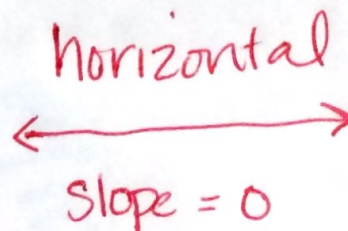 horizontal
slope = 0